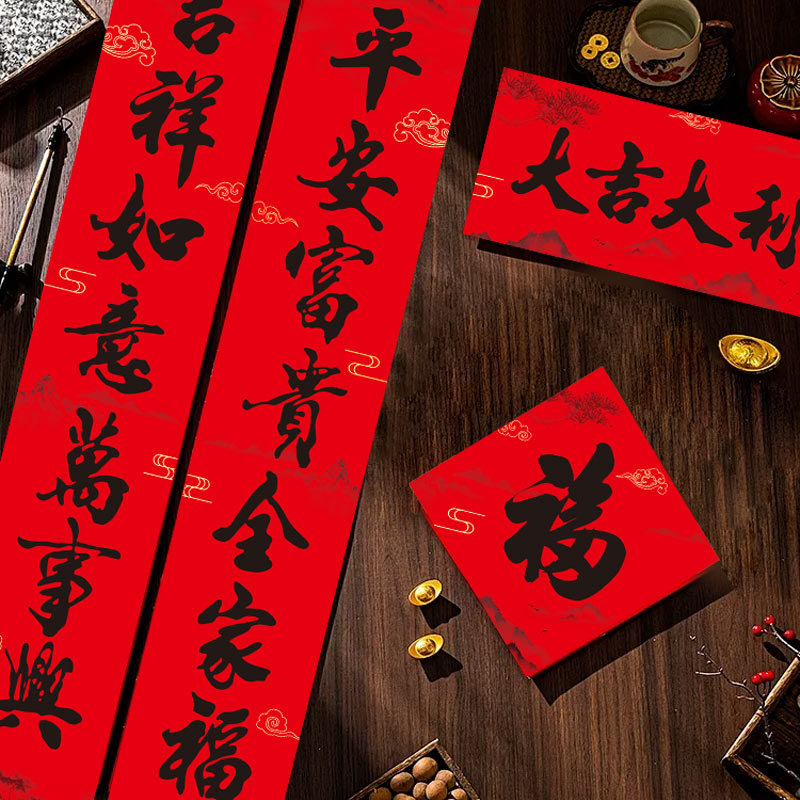 平安富貴全家福
吉祥如意萬事興
大吉大利
福